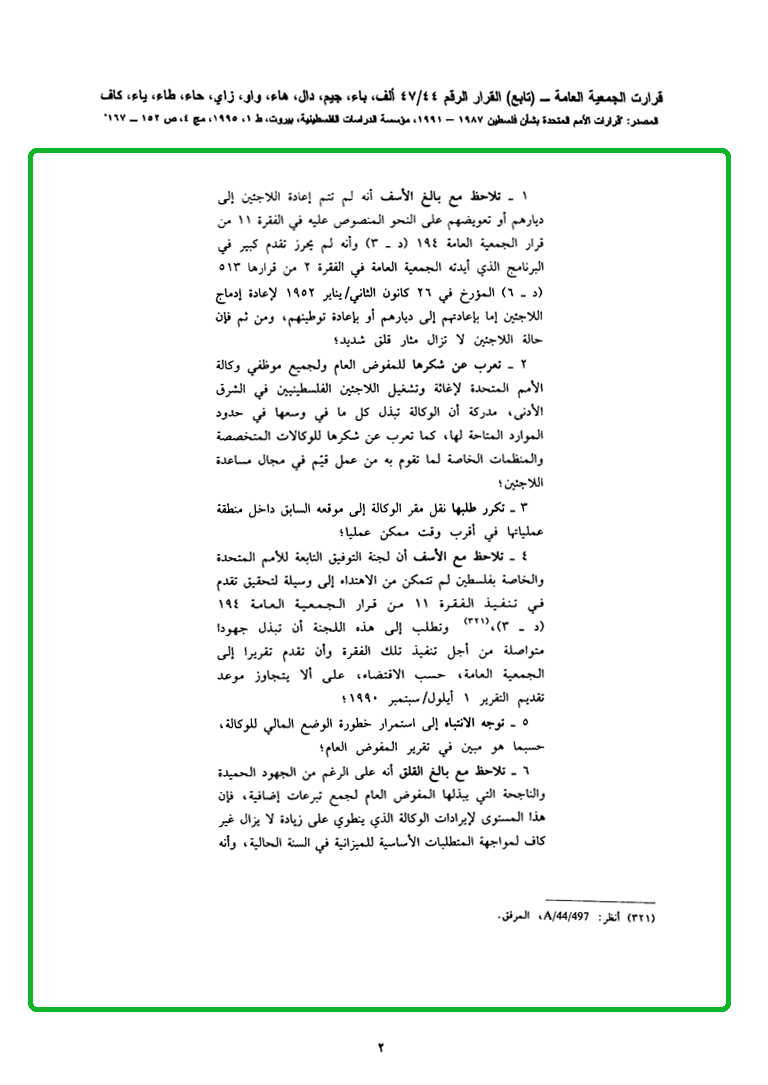 قرارت الجمعية العامة ــ (تابع) القرار الرقم ٤٧/٤٤ ألف، باء، جيم، دال، هاء، واو، زاي، حاء، طاء، ياء، كاف
المصدر: "قرارات الأمم المتحدة بشأن فلسطين ١٩٨٧ – ١٩٩١، مؤسسة الدراسات الفلسطينية، بيروت، ط ١، ١٩٩٥، مج ٤، ص ١٥٢ ــ ١٦٧"
١ ـ تلاحظ مع بالغ الأسف أنه لم تتم إعادة اللاجئين إلى
ديارهم أو تعويضهم على النحو المنصوص عليه في الفقرة ١١ من
قرار الجمعية العامة ١٩٤ (د ـ ٣) وأنه لم يحرز تقدم كبير في
البرنامج الذي أيدته الجمعية العامة في الفقرة ٢ من قرارها ٥١٣
(د ـ ٦) المؤرخ في ٢٦ كانون الثاني/يناير ١٩٥٢ لإعادة إدماج
اللاجئين إما بإعادتهم إلى ديارهم أو بإعادة توطينهم، ومن ثم فإن
حالة اللاجئين لا تزال مثار قلق شديد؛
٢ ـ تعرب عن شكرها للمفوض العام ولجميع موظفي وكالة
الأمم المتحدة لإغاثة وتشغيل اللاجئين الفلسطينيين في الشرق
الأدنى، مدركة أن الوكالة تبذل كل ما في وسعها في حدود
الموارد المتاحة لها، كما تعرب عن شكرها للوكالات المتخصصة
والمنظمات الخاصة لما تقوم به من عمل قيّم في مجال مساعدة
اللاجئين؛
٣ ـ تكرر طلبها نقل مقر الوكالة إلى موقعه السابق داخل منطقة
عملياتها في أقرب وقت ممكن عمليا؛
٤ ـ تلاحظ مع الأسف أن لجنة التوفيق التابعة للأمم المتحدة
والخاصة بفلسطين لم تتمكن من الاهتداء إلى وسيلة لتحقيق تقدم
في تنفيذ الفقرة ١١ من قرار الجمعية العامة ١٩٤
(د ـ ٣)،(٣٢١) وتطلب إلى هذه اللجنة أن تبذل جهودا
متواصلة من أجل تنفيذ تلك الفقرة وأن تقدم تقريرا إلى
الجمعية العامة، حسب الاقتضاء، على ألا يتجاوز موعد
تقديم التقرير ١ أيلول/سبتمبر ١٩٩٠؛
٥ ـ توجه الانتباه إلى استمرار خطورة الوضع المالي للوكالة،
حسبما هو مبين في تقرير المفوض العام؛
٦ ـ تلاحظ مع بالغ القلق أنه على الرغم من الجهود الحميدة
والناجحة التي يبذلها المفوض العام لجمع تبرعات إضافية، فإن
هذا المستوى لإيرادات الوكالة الذي ينطوي على زيادة لا يزال غير
كاف لمواجهة المتطلبات الأساسية للميزانية في السنة الحالية، وأنه
(٣٢١) أنظر: A/44/497، المرفق.
٢